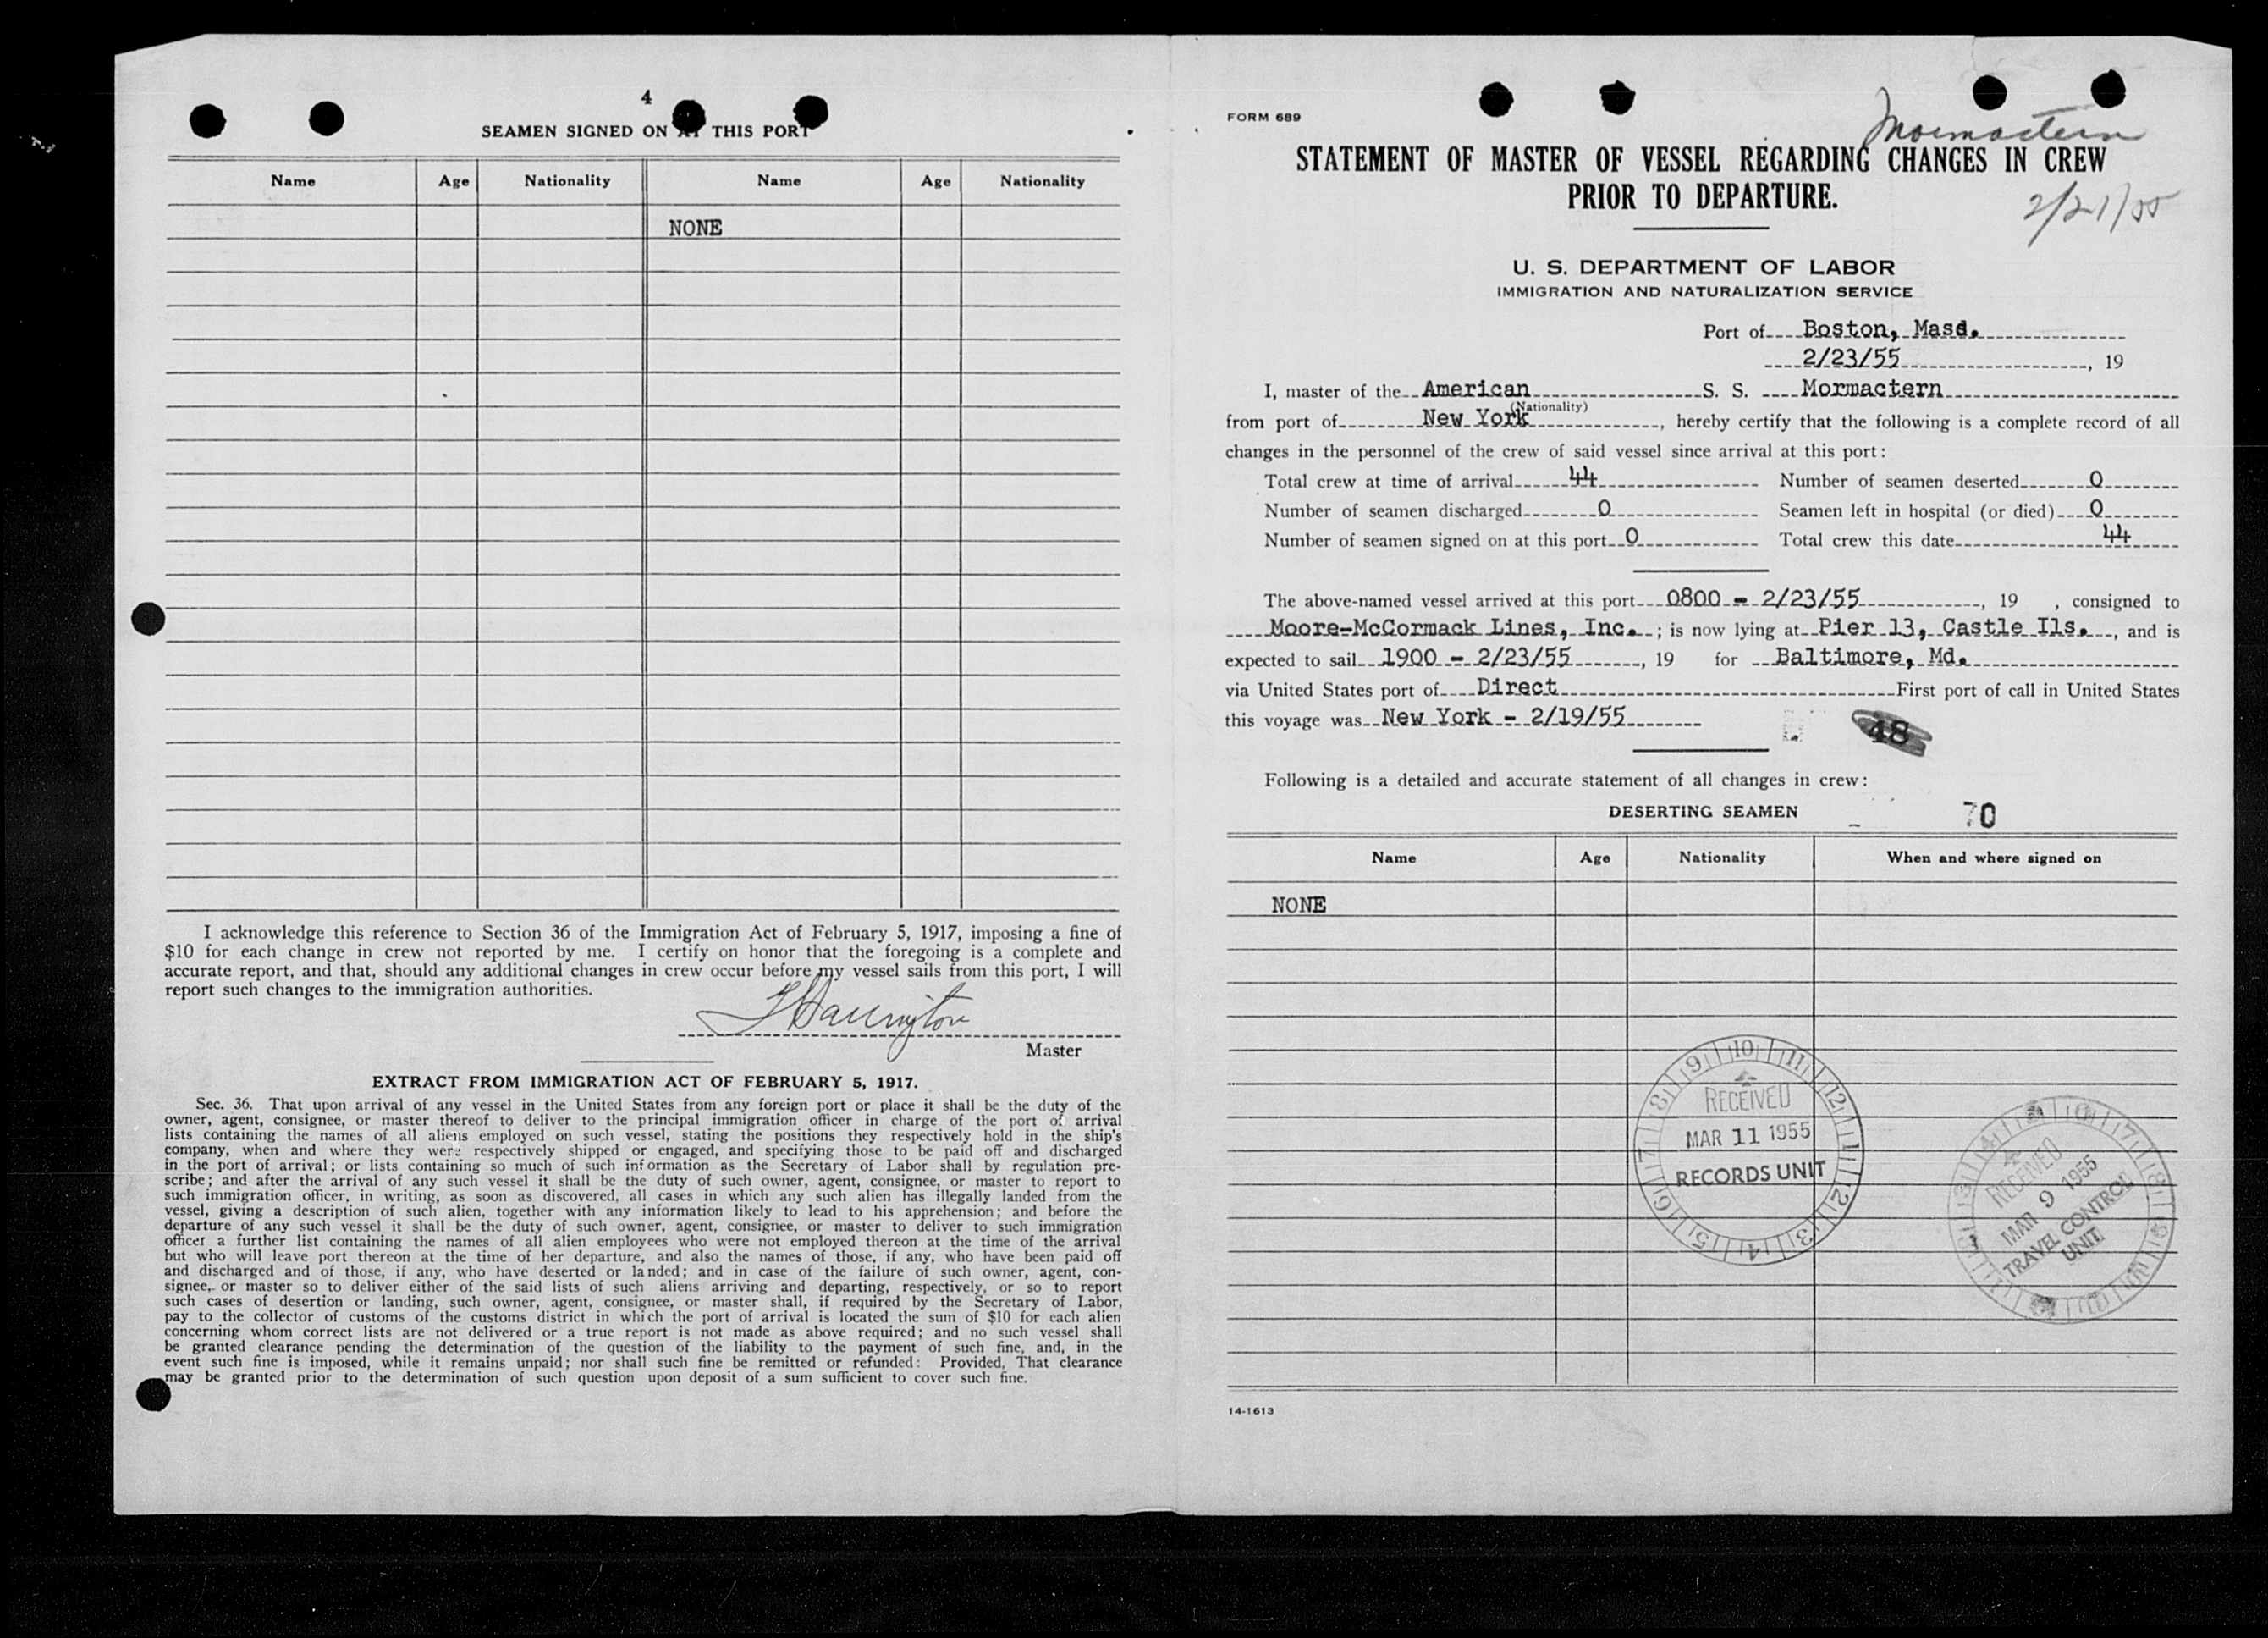 4
SEAMEN SIGNED ON AT THIS PORT
Name Age Nationality Name Age Nationality
NONE
I acknowledge this reference to Section 36 of the Immigration Act of February 5, 1917, imposing a fine of
$10 for each change in crew not reported by me. I certify on honor that the foregoing is a complete and
accurate report, and that, should any additional changes in crew occur before my vessel sails from this port, I will
report such changes to the immigration authorities.
Master
EXTRACT FROM IMMIGRATION ACT OF FEBRUARY 5, 1917.
Sec. 36. That upon arrival of any vessel in the United States from any foreign port or place it shall be the duty of the
owner, agent, consignee, or master thereof to deliver to the principal immigration officer in charge of the port of arrival
lists containing the names of all aliens employed on such vessel, stating the positions they respectively hold in the ship's
company, when and where they were respectively shipped or engaged, and specifying those to be paid off and discharged
in the port of arrival; or lists containing so much of such information as the Secretary of Labor shall by regulation pre-
scribe; and after the arrival of any such vessel it shall be the duty of such owner, agent, consignee, or master to report to
such immigration officer, in writing, as soon as discovered, all cases in which any such alien has illegally landed from the
vessel, giving a description of such alien, together with any information likely to lead to his apprehension; and before the
departure of any such vessel it shall be the duty of such owner, agent, consignee, or master to deliver to such immigration
officer a further list containing the names of all alien employees who were not employed thereon at the time of the arrival
but who will leave port thereon at the time of her departure, and also the names of those, if any, who have been paid off
and discharged and of those, if any, who have deserted or landed; and in case of the failure of such owner, agent, con-
signee, or master so to deliver either of the said lists of such aliens arriving and departing, respectively, or so to report
such cases of desertion or landing, such owner, agent, consignee, or master shall, if required by the Secretary of Labor,
pay to the collector of customs of the customs district in which the port of arrival is located the sum of $10 for each alien
concerning whom correct lists are not delivered or a true report is not made as above required; and no such vessel shall
be granted clearance pending the determination of the question of the liability to the payment of such fine, and, in the
event such fine is imposed, while it remains unpaid; nor shall such fine be remitted or refunded: Provided, That clearance
may be granted prior to the determination of such question upon deposit of a sum sufficient to cover such fine.
FORM 689
Mormactern
STATEMENT OF MASTER OF VESSEL REGARDING CHANGES IN CREW
PRIOR TO DEPARTURE.
2/21/55
U. S. DEPARTMENT OF LABOR
IMMIGRATION AND NATURALIZATION SERVICE
Port of Boston, Masd.
2/23/55, 19
I, master of the American S. S. Mormactern
(Nationality)
from port of New York, hereby certify that the following is a complete record of all
changes in the personnel of the crew of said vessel since arrival at this port:
Total crew at time of arrival 44 Number of seamen deserted 0
Number of seamen discharged 0 Seamen left in hospital (or died) 0
Number of seamen signed on at this port 0 Total crew this date 44
The above-named vessel arrived at this port 0800 - 2/23/55, 19 , consigned to
Moore-McCormack Lines, Inc. ; is now lying at Pier 13, Castle Ils. , and is
expected to sail 1900 - 2/23/55, 19 for Baltimore, Md.
via United States port of Direct First port of call in United States
this voyage was New York - 2/19/55
48
Following is a detailed and accurate statement of all changes in crew:
DESERTING SEAMEN
70
Name Age Nationality When and where signed on
NONE
9 10 11 12 1 2 3 4 5 6 7 8
RECEIVED
MAR 11 1955
RECORDS UNIT
RECEIVED
MAR 9 1955
TRAVEL CONTROL
UNIT
14-1613